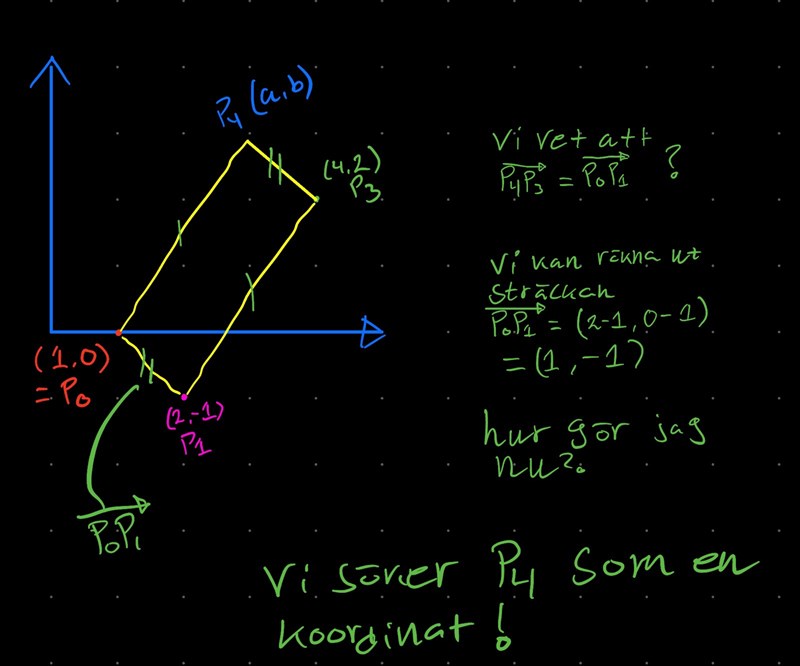 P4 (a,b)
(4,2)
P3
(1,0)
= P0
(2,-1)
P1
P0P1
Vi vet att
P4P3 = P0P1 ?
Vi kan räkna ut
sträckan
P0P1 = (2-1, 0-1)
= (1, -1)
hur gör jag
nu?
Vi söker P4 som en
koordinat!